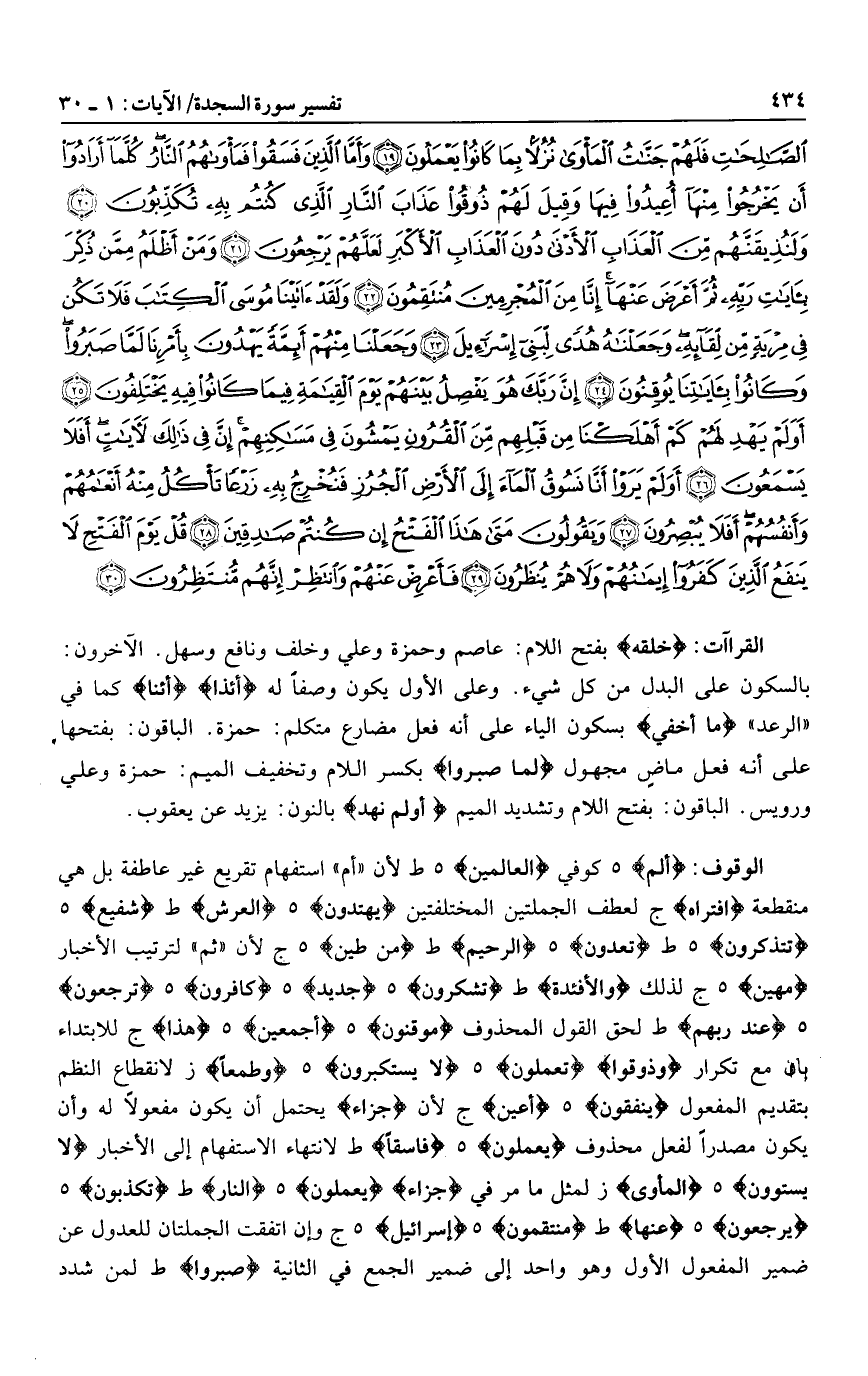 ٤٣٤
تفسير سورة السجدة/ الآيات: ١ ـ ٣٠
ٱلصَّٰلِحَٰتِ فَلَهُمْ جَنَّٰتُ ٱلْمَأْوَىٰ نُزُلًۢا بِمَا كَانُوا۟ يَعْمَلُونَ ﴿١٩﴾ وَأَمَّا ٱلَّذِينَ فَسَقُوا۟ فَمَأْوَىٰهُمُ ٱلنَّارُ ۖ كُلَّمَآ أَرَادُوٓا۟
أَن يَخْرُجُوا۟ مِنْهَآ أُعِيدُوا۟ فِيهَا وَقِيلَ لَهُمْ ذُوقُوا۟ عَذَابَ ٱلنَّارِ ٱلَّذِى كُنتُم بِهِۦ تُكَذِّبُونَ ﴿٢٠﴾
وَلَنُذِيقَنَّهُم مِّنَ ٱلْعَذَابِ ٱلْأَدْنَىٰ دُونَ ٱلْعَذَابِ ٱلْأَكْبَرِ لَعَلَّهُمْ يَرْجِعُونَ ﴿٢١﴾ وَمَنْ أَظْلَمُ مِمَّن ذُكِّرَ
بِـَٔايَٰتِ رَبِّهِۦ ثُمَّ أَعْرَضَ عَنْهَآ ۚ إِنَّا مِنَ ٱلْمُجْرِمِينَ مُنتَقِمُونَ ﴿٢٢﴾ وَلَقَدْ ءَاتَيْنَا مُوسَى ٱلْكِتَٰبَ فَلَا تَكُن
فِى مِرْيَةٍ مِّن لِّقَآئِهِۦ ۖ وَجَعَلْنَٰهُ هُدًى لِّبَنِىٓ إِسْرَٰٓءِيلَ ﴿٢٣﴾ وَجَعَلْنَا مِنْهُمْ أَئِمَّةً يَهْدُونَ بِأَمْرِنَا لَمَّا صَبَرُوا۟ ۖ
وَكَانُوا۟ بِـَٔايَٰتِنَا يُوقِنُونَ ﴿٢٤﴾ إِنَّ رَبَّكَ هُوَ يَفْصِلُ بَيْنَهُمْ يَوْمَ ٱلْقِيَٰمَةِ فِيمَا كَانُوا۟ فِيهِ يَخْتَلِفُونَ ﴿٢٥﴾
أَوَلَمْ يَهْدِ لَهُمْ كَمْ أَهْلَكْنَا مِن قَبْلِهِم مِّنَ ٱلْقُرُونِ يَمْشُونَ فِى مَسَٰكِنِهِمْ ۚ إِنَّ فِى ذَٰلِكَ لَءَايَٰتٍ ۖ أَفَلَا
يَسْمَعُونَ ﴿٢٦﴾ أَوَلَمْ يَرَوْا۟ أَنَّا نَسُوقُ ٱلْمَآءَ إِلَى ٱلْأَرْضِ ٱلْجُرُزِ فَنُخْرِجُ بِهِۦ زَرْعًا تَأْكُلُ مِنْهُ أَنْعَٰمُهُمْ
وَأَنفُسُهُمْ ۖ أَفَلَا يُبْصِرُونَ ﴿٢٧﴾ وَيَقُولُونَ مَتَىٰ هَٰذَا ٱلْفَتْحُ إِن كُنتُمْ صَٰدِقِينَ ﴿٢٨﴾ قُلْ يَوْمَ ٱلْفَتْحِ لَا
يَنفَعُ ٱلَّذِينَ كَفَرُوٓا۟ إِيمَٰنُهُمْ وَلَا هُمْ يُنظَرُونَ ﴿٢٩﴾ فَأَعْرِضْ عَنْهُمْ وَٱنتَظِرْ إِنَّهُم مُّنتَظِرُونَ ﴿٣٠﴾
القراآت: ﴿خلقه﴾ بفتح اللام: عاصم وحمزة وعلي وخلف ونافع وسهل. الآخرون:
بالسكون على البدل من كل شيء. وعلى الأول يكون وصفاً له ﴿أئذا﴾ ﴿أئنا﴾ كما في
«الرعد» ﴿ما أخفي﴾ بسكون الياء على أنه فعل مضارع متكلم: حمزة. الباقون: بفتحها
على أنه فعل ماضٍ مجهول ﴿لما صبروا﴾ بكسر اللام وتخفيف الميم: حمزة وعلي
ورويس. الباقون: بفتح اللام وتشديد الميم ﴿أولم نهد﴾ بالنون: يزيد عن يعقوب.
الوقوف: ﴿ألم﴾ ٥ كوفي ﴿العالمين﴾ ٥ ط لأن «أم» استفهام تقريع غير عاطفة بل هي
منقطعة ﴿افتراه﴾ ج لعطف الجملتين المختلفتين ﴿يهتدون﴾ ٥ ﴿العرش﴾ ط ﴿شفيع﴾ ٥
﴿تتذكرون﴾ ٥ ط ﴿تعدون﴾ ٥ ﴿الرحيم﴾ ط ﴿من طين﴾ ٥ ج لأن «ثم» لترتيب الأخبار
﴿مهين﴾ ٥ ج لذلك ﴿والأفئدة﴾ ط ﴿تشكرون﴾ ٥ ﴿جديد﴾ ٥ ﴿كافرون﴾ ٥ ﴿ترجعون﴾
٥ ﴿عند ربهم﴾ ط لحق القول المحذوف ﴿موقنون﴾ ٥ ﴿أجمعين﴾ ٥ ﴿هذا﴾ ج للابتداء
بإن مع تكرار ﴿وذوقوا﴾ ﴿تعملون﴾ ٥ ﴿لا يستكبرون﴾ ٥ ﴿وطمعاً﴾ ز لانقطاع النظم
بتقديم المفعول ﴿ينفقون﴾ ٥ ﴿أعين﴾ ج لأن ﴿جزاء﴾ يحتمل أن يكون مفعولاً له وأن
يكون مصدراً لفعل محذوف ﴿يعملون﴾ ٥ ﴿فاسقاً﴾ ط لانتهاء الاستفهام إلى الأخبار ﴿لا
يستوون﴾ ٥ ﴿المأوى﴾ ز لمثل ما مر في ﴿جزاء﴾ ﴿يعملون﴾ ٥ ﴿النار﴾ ط ﴿تكذبون﴾ ٥
﴿يرجعون﴾ ٥ ﴿عنها﴾ ط ﴿منتقمون﴾ ٥ ﴿إسرائيل﴾ ٥ ج وإن اتفقت الجملتان للعدول عن
ضمير المفعول الأول وهو واحد إلى ضمير الجمع في الثانية ﴿صبروا﴾ ط لمن شدد